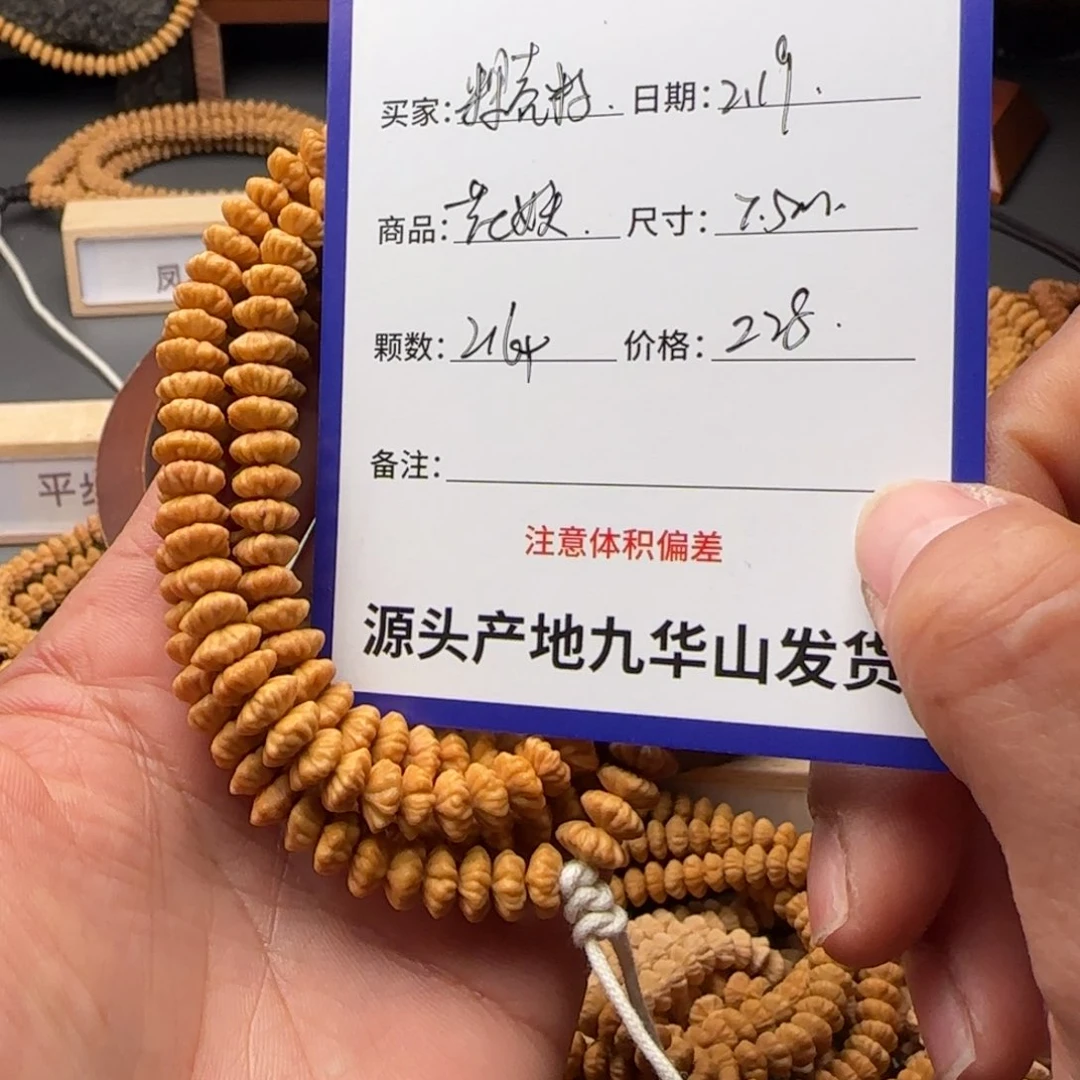 买家： 日期：2.19.
商品：花妖. 尺寸：7.5m.
颗数：216 价格：228.
备注：
注意体积偏差
源头产地九华山发货
凤
平